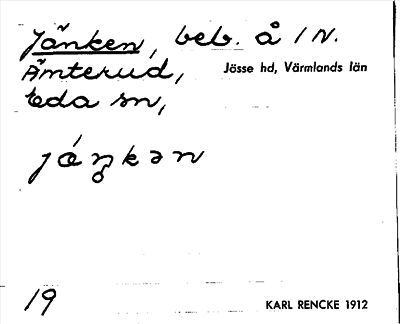 Jänken, beb. å 1 N.
Ämterud, Jösse hd, Värmlands län
Eda sn,
19 KARL RENCKE 1912